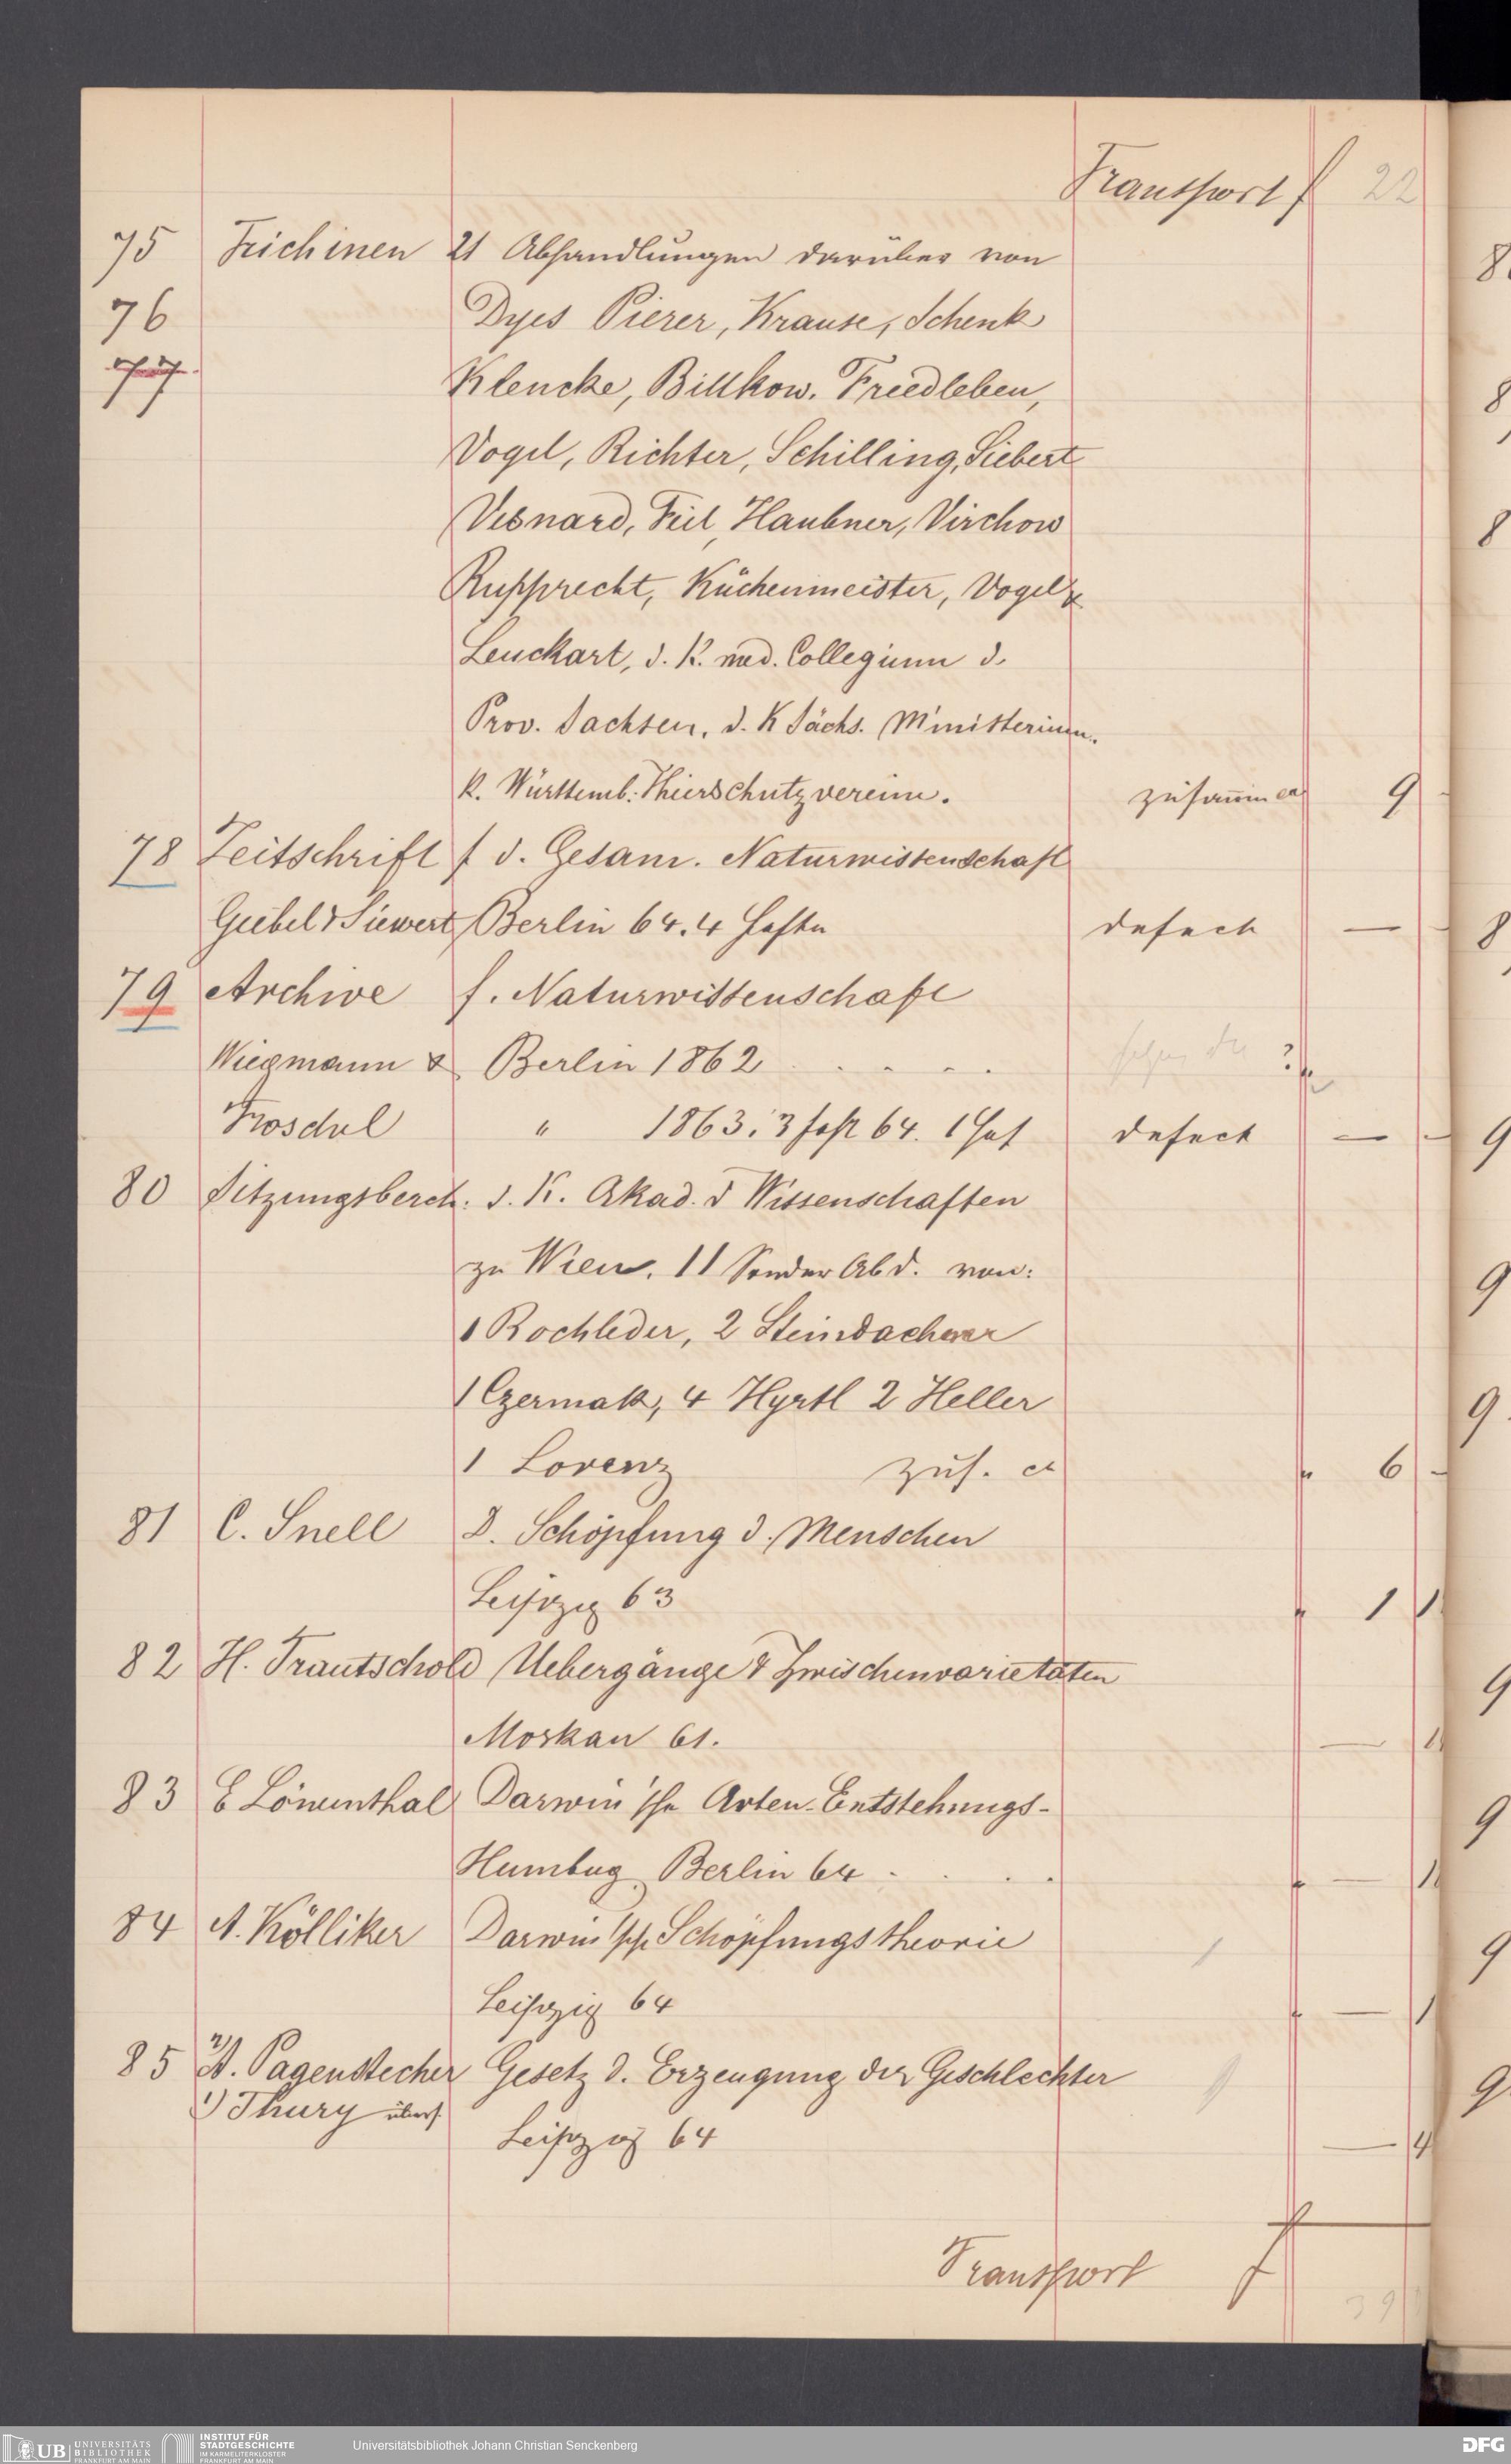 Transport f 22
75 Trichinen 21 Abhandlungen darüber von
76 Dyes Pierer, Krause, Schenk
77 Klencke, Billkow. Friedleben,
Vogel, Richter, Schilling, Siebert
Visnard, Fiel, Haubner, Virchow
Rupprecht, Küchenmeister, Vogel &
Leuckart, d. K. med. Collegium d.
Prov. Sachsen, d. K Sächs. Ministerium.
k. Württemb. Thierschutzverein. zusammen 9
78 Zeitschrift f d. Gesam. Naturwissenschaft
Giebel & Siewert, Berlin 64. 4 Hefte defect —
79 Archive f. Naturwissenschaft
Wiegmann & Berlin 1862 . . . . .
Troschel " 1863. 3 Heft 64. 1 Heft defect —
80 Sitzungsberch. d. K. Akad. d Wissenschaften
zu Wien. 11 Sonder Abd. von:
1 Rochleder, 2 Steindachner
1 Czermak, 4 Hyrtl 2 Heller
1 Lorenz zus. 6 -
81 C. Snell D. Schöpfung d. Menschen
Leipzig 63 1
82 H. Trautschold Uebergänge & Zwischenvarietäten
Moskau 61. —
83 E Löwenthal Darwin'sche Arten-Entstehungs-
Humbug Berlin 64 . . . . —
84 A. Kölliker Darwin'sche Schöpfungstheorie
Leipzig 64 —
85 2) A. Pagenstecher Gesetz d. Erzeugung der Geschlechter
1) Thury übers. Leipzig 64 —
Transport f 39
UB UNIVERSITÄTS BIBLIOTHEK FRANKFURT AM MAIN
INSTITUT FÜR STADTGESCHICHTE IM KARMELITERKLOSTER FRANKFURT AM MAIN
Universitätsbibliothek Johann Christian Senckenberg
DFG